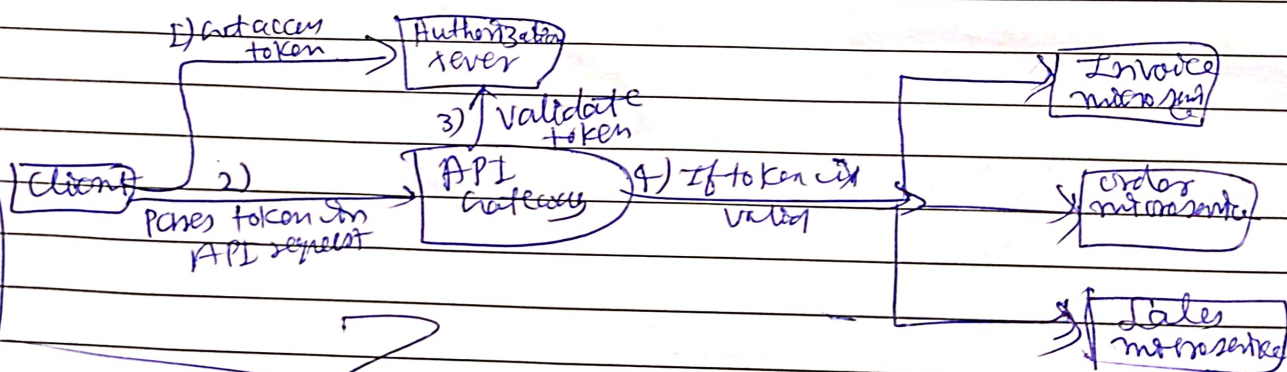 1) Get access
token
Authorization
server
3) validate
token
Client
2)
Passes token in
API request
API
Gateway
4) If token is
valid
Invoice
microservice
order
microservice
Sales
microservice